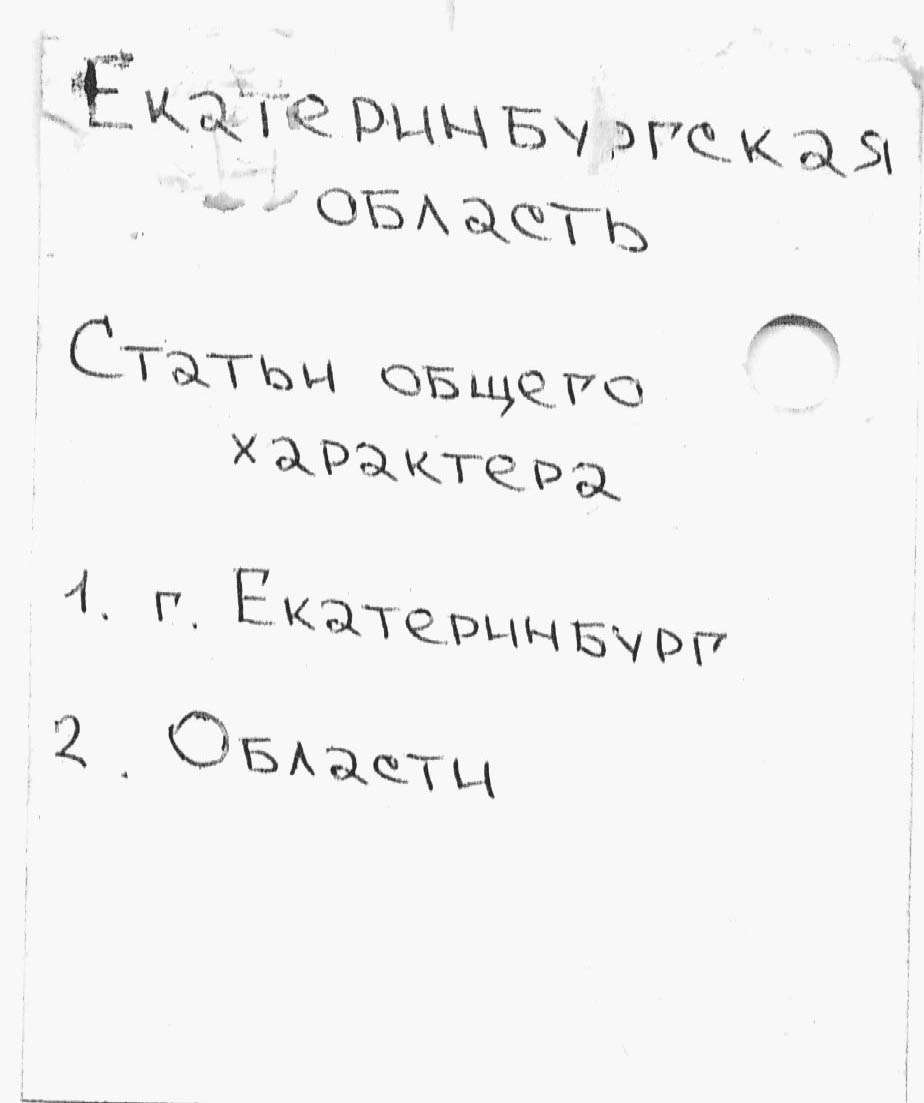 Екатеринбургская
область
Статьи общего
характера
1. г. Екатеринбург
2. Области